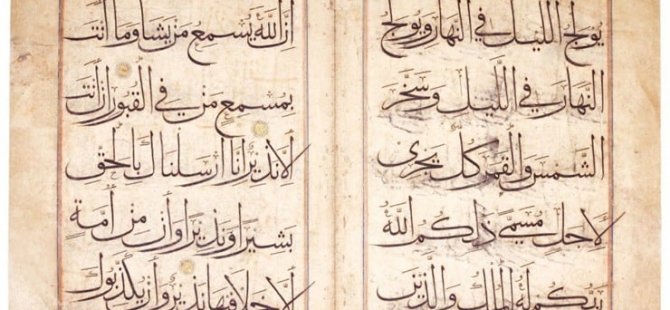 يُولِجُ اللَّيْلَ فِي النَّهَارِ وَيُولِجُ
النَّهَارَ فِي اللَّيْلِ وَسَخَّرَ
الشَّمْسَ وَالْقَمَرَ كُلٌّ يَجْرِى
لِأَجَلٍ مُسَمًّى ذَلِكُمُ اللَّهُ
رَبُّكُمْ لَهُ الْمُلْكُ وَالَّذِينَ
إِنَّ اللَّهَ يُسْمِعُ مَنْ يَشَاءُ وَمَا أَنْتَ
بِمُسْمِعٍ مَنْ فِي الْقُبُورِ إِنْ أَنْتَ
إِلَّا نَذِيرٌ إِنَّا أَرْسَلْنَاكَ بِالْحَقِّ
بَشِيرًا وَنَذِيرًا وَإِنْ مِنْ أُمَّةٍ
إِلَّا خَلَا فِيهَا نَذِيرٌ وَإِنْ يُكَذِّبُوكَ